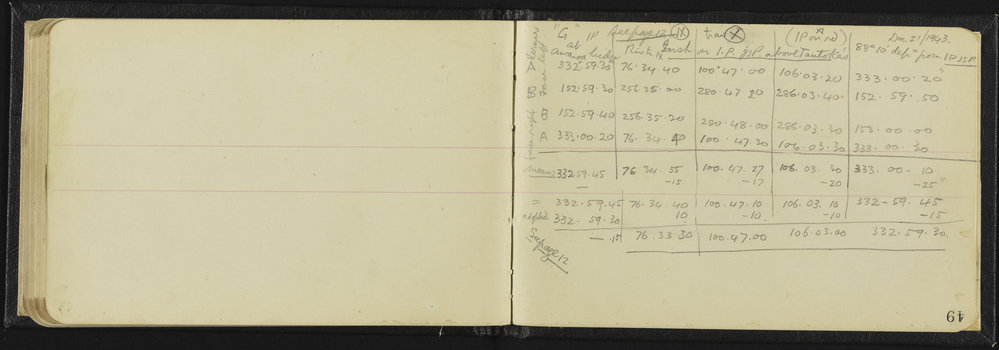 "G" IP See page 12 IX trav X (IP on rd) Dec 21/1943.
at Pirik IX Garsk or I.P. JP above Tantokais 88° 10' defn from IP JSP.
face left
A 332°.59.30 76.34.40 100°47.00 106.03.20 333.00.20"
B 152.59.30 256.35.00 280.47.20 286.03.40. 152.59.50
face right
B 152.59.40 256.35.20 280.48.00 286.03.30 153.00.00
A 333.00.20 76.34.40 100.47.30 106.03.30 333.00.30
means 332.59.45 76.34.55 100.47.27 106.03.30 333.00.10
— -15 -17 -20 -25"
= 332.59.45 76.34.40 100.47.10 106.03.10 332-59.45
332.59.30 10 -10. -10 -15
— .15 76.33 30 100.47.00 106.03.00 332.59.30.
See page 12
49